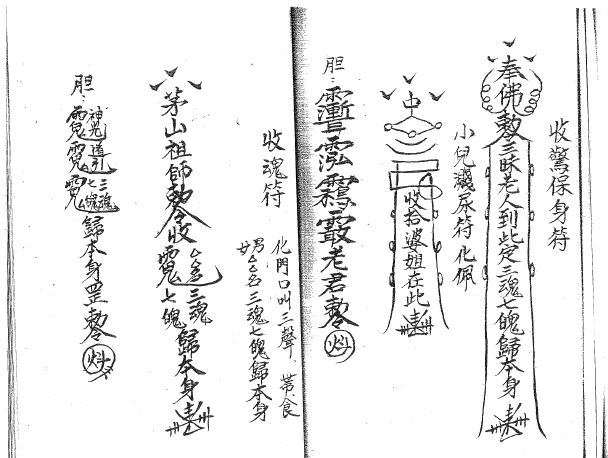 收驚保身符
奉佛敕三昧老人到此定三魂七魄歸本身
小兒濺尿符化佩
中
收拾婆姐在此
胆:
老君敕
收魂符
化門口叫三聲、帶食
男女厶厶名三魂七魄歸本身
茅山祖師敕令收厶厶名三魂七魄歸本身
胆:
神光導引
三魂七魄
歸本身罡敕令